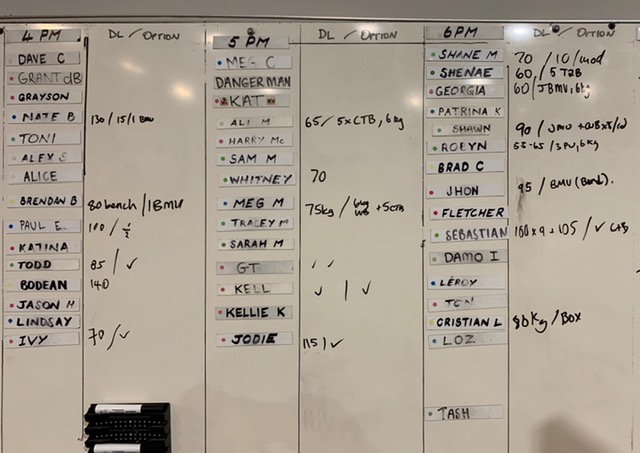 4 PM DL / OPTION
DAVE C
GRANT dB
GRAYSON
NATE B 130 / 15 / 1 BMU
TONI
ALEX S
ALICE
BRENDAN B 80 bench / 1 BMU
PAUL E. 100 / ½
KATINA
TODD 85 / ✓
BODEAN 140
JASON H
LINDSAY
IVY 70 / ✓
5 PM DL / OPTION
MEG C
DANGERMAN
KAT
ALI M 65 / 5xCTB, 6kg
HARRY Mc
SAM M
WHITNEY 70
MEG M 75kg / 6kg WB + 5CTB
TRACEY M
SARAH M
GT ✓ ✓
KELL ✓ | ✓
KELLIE K
JODIE 115 | ✓
6PM DL / OPTION
SHANE M 70 / 10 / mod
SHENAE 60, / 5 T2B
GEORGIA 60 / JBMU, 6kg
PATRINA K
SHAWN 90 /
ROBYN 55-65 / 3PU, 6kg
BRAD C
JHON 95 / BMU (Band).
FLETCHER
SEBASTIAN 100 x 9 + 105 / ✓ CTB
DAMO I
LEROY
TON
CRISTIAN L 80kg / BOX
LOZ
TASH